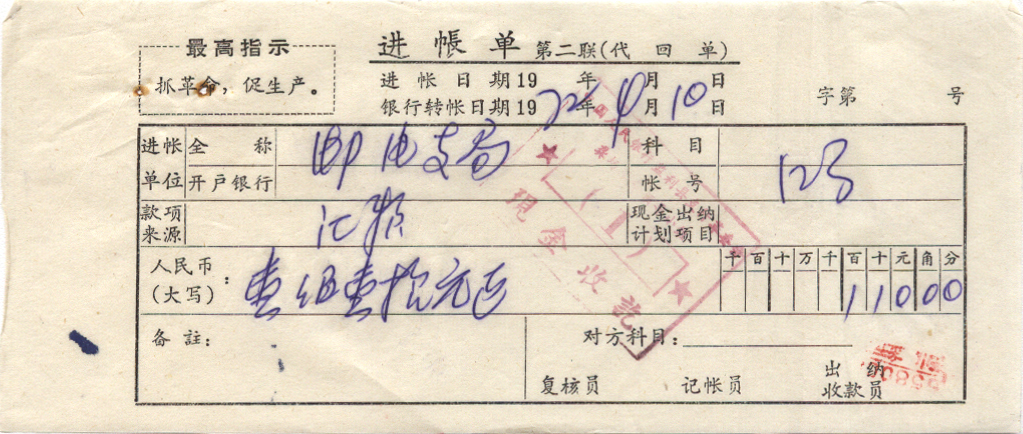 最高指示
抓革命，促生产。
进帳单 第二联(代回单)
进帐日期19 年 月 日
银行转帐日期19 72年 4月 10日
字第 号
进帐单位 全称 邮电支局 科目
开户银行 帐号 123
款项来源 汇兑 现金出纳计划项目
人民币(大写)： 壹佰壹拾元正 千百十万千百十元角分 11000
备註： 对方科目：
复核员 记帐员 出纳收款员
现金收讫
(1)